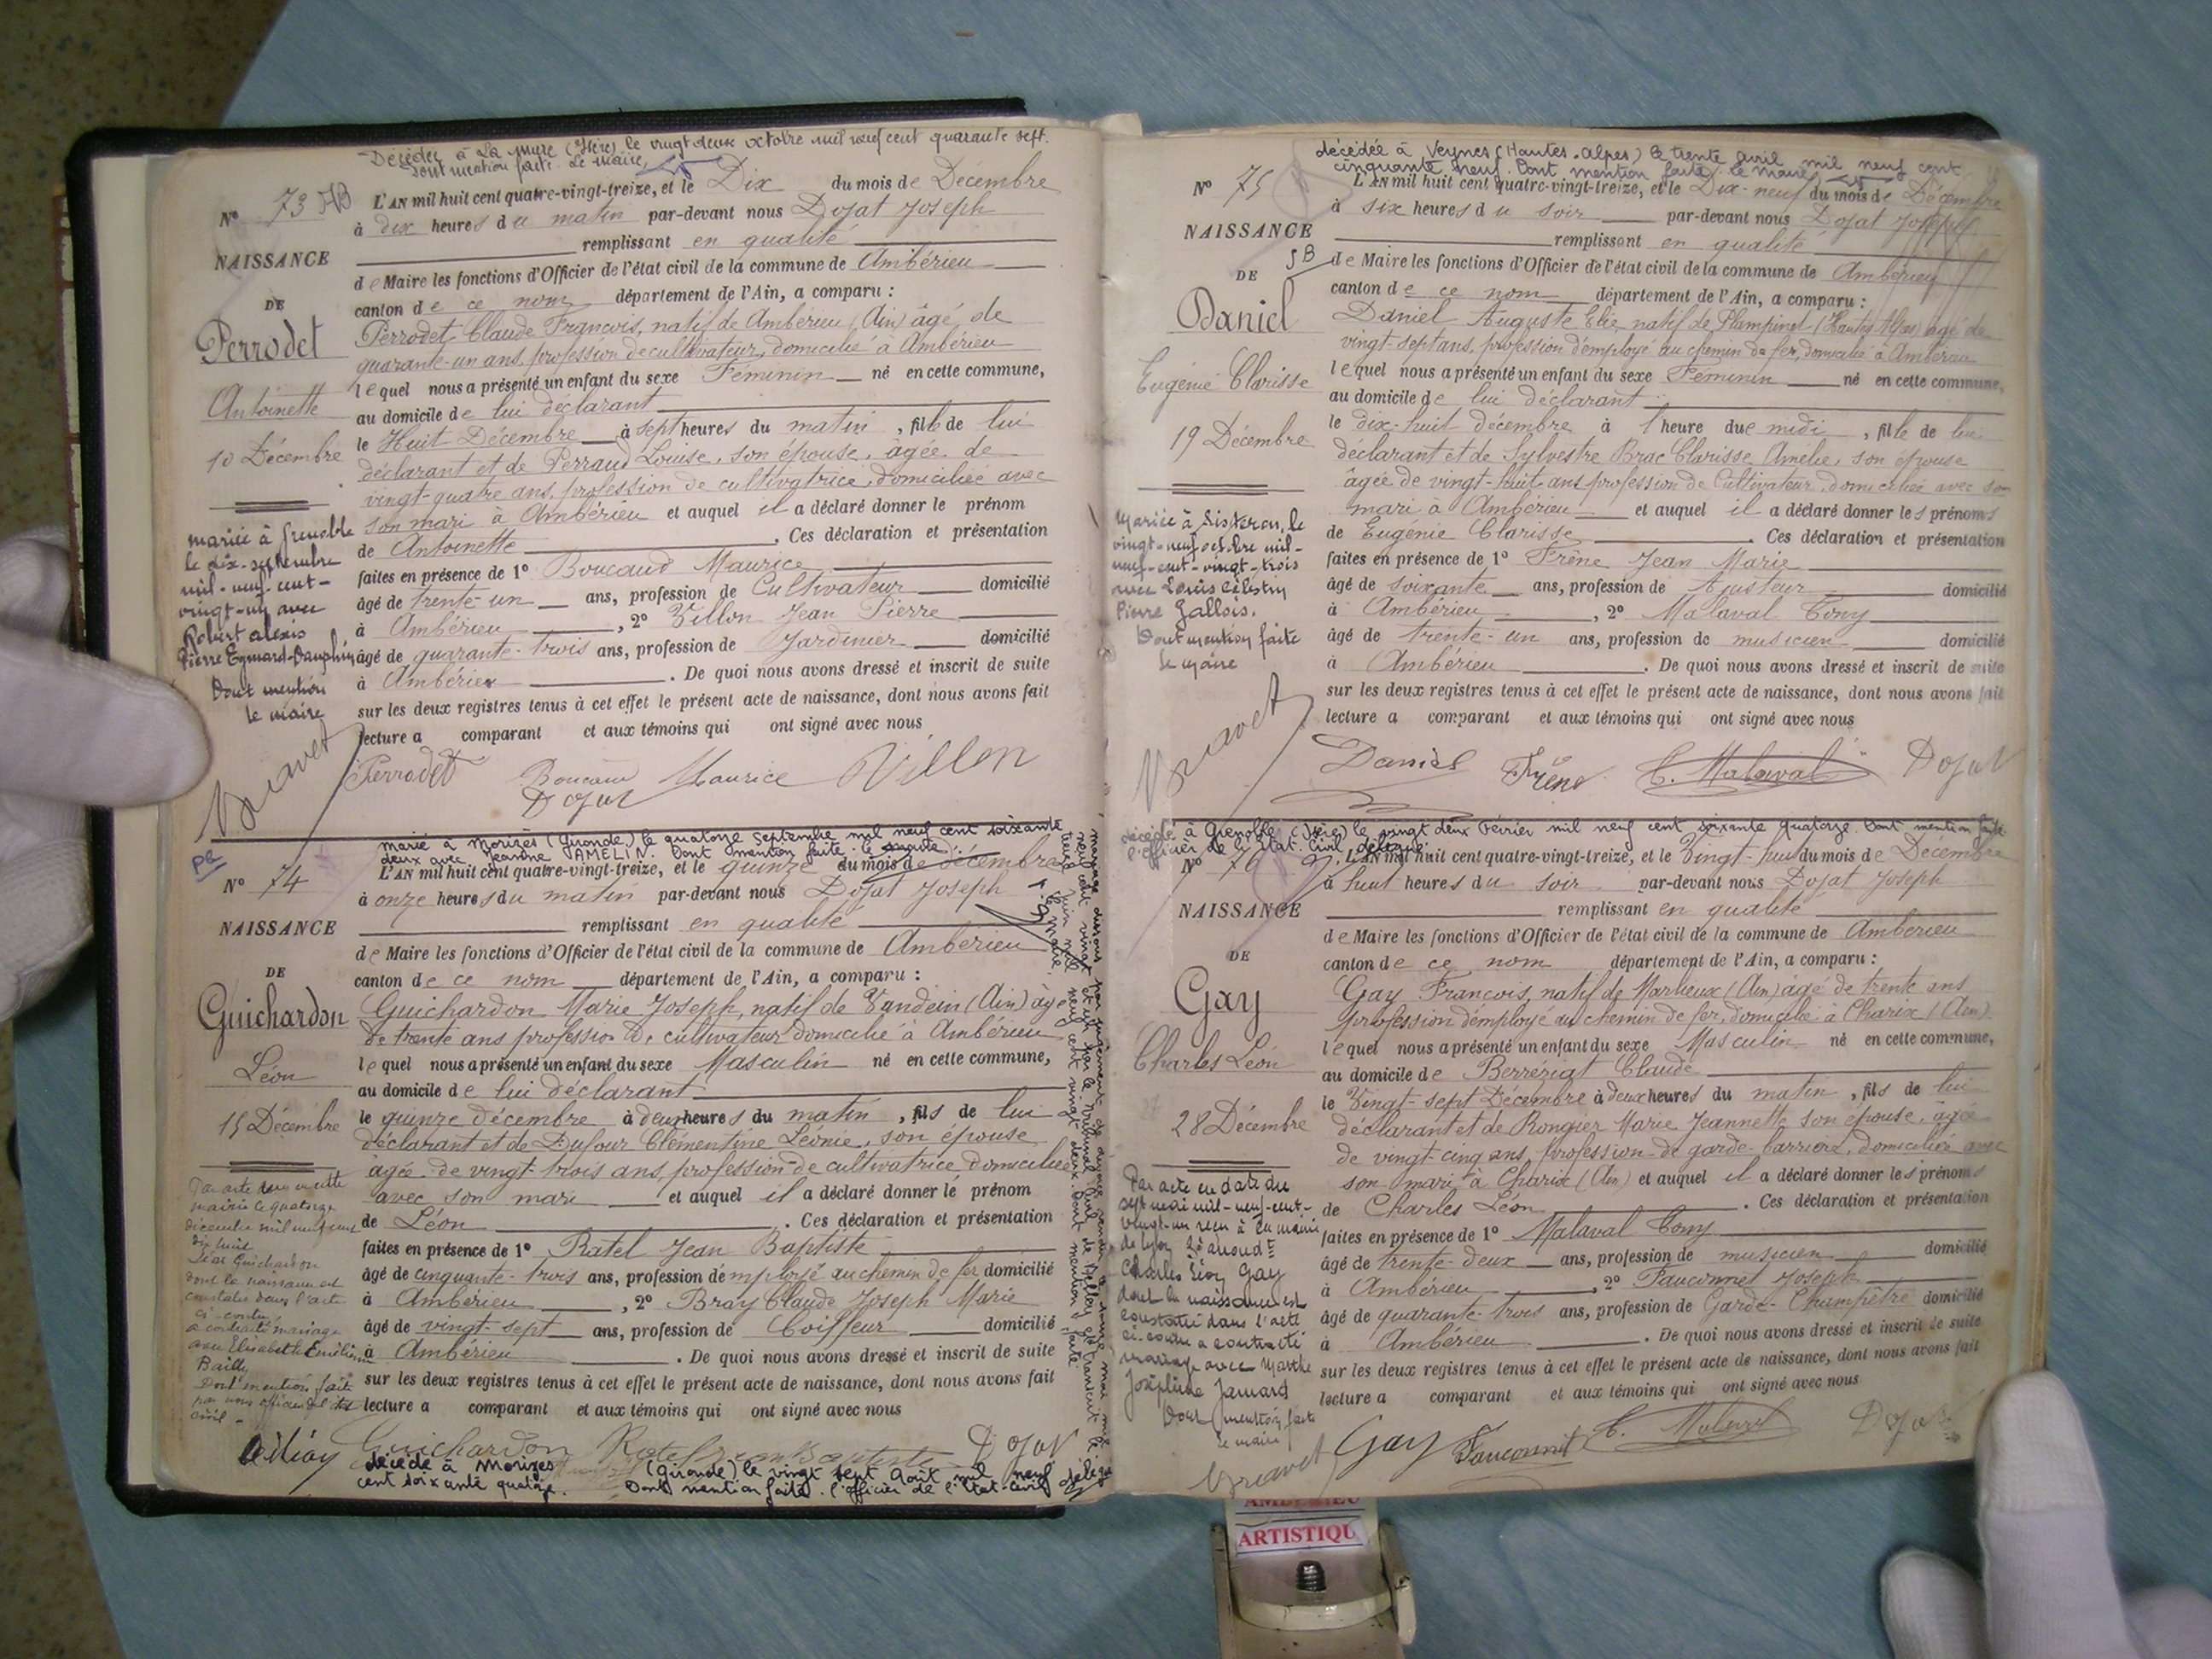 Décédée à La Mure (Isère) le vingt deux octobre mil neuf cent quarante sept.
Dont mention faite. Le Maire,
N° 73
NAISSANCE
DE
Perrodet
Antoinette
10 Décembre
mariée à Grenoble
le dix-septembre
mil-neuf-cent-
vingt-un avec
Robert Alexis
Pierre Eymard-Dauphin
Dont mention
le maire
Bravet
L'AN mil huit cent quatre-vingt-treize, et le Dix du mois de Décembre
à dix heures du matin par-devant nous Dojat Joseph
remplissant en qualité
de Maire les fonctions d'Officier de l'état civil de la commune de Ambérieu
canton de ce nom département de l'Ain, a comparu :
Perrodet Claude François, natif de Ambérieu (Ain) âgé de
quarante-un ans, profession de cultivateur, domicilié à Ambérieu
lequel nous a présenté un enfant du sexe Féminin né en cette commune,
au domicile de lui déclarant
le Huit Décembre à sept heures du matin, fille de lui
déclarant et de Perraud Louise, son épouse, âgée de
vingt-quatre ans, profession de cultivatrice, domiciliée avec
son mari à Ambérieu et auquel il a déclaré donner le prénom
de Antoinette. Ces déclaration et présentation
faites en présence de 1° Boucaud Maurice
âgé de trente-un ans, profession de Cultivateur domicilié
à Ambérieu, 2° Villon Jean Pierre
âgé de quarante-trois ans, profession de Jardinier domicilié
à Ambérieu. De quoi nous avons dressé et inscrit de suite
sur les deux registres tenus à cet effet le présent acte de naissance, dont nous avons fait
lecture a comparant et aux témoins qui ont signé avec nous
Perrodet Boucaud Maurice Villon
Dojat
marié à Morizès (Gironde) le quatorze Septembre mil neuf cent soixante
deux avec Jeanne JAMELIN. Dont mention faite. le
N° 74
NAISSANCE
DE
Guichardon
Léon
15 Décembre
Par acte reçu en cette
mairie le quatorze
décembre mil neuf cent
dix huit
Léon Guichardon
dont la naissance est
constatée dans l'acte
ci-contre,
a contracté mariage
avec Elisabeth Emélienne
Bailly
Dont mention faite
par nous officier de l'état
civil -
L'AN mil huit cent quatre-vingt-treize, et le quinze du mois de décembre
à onze heures du matin par-devant nous Dojat Joseph
remplissant en qualité
de Maire les fonctions d'Officier de l'état civil de la commune de Ambérieu
canton de ce nom département de l'Ain, a comparu :
Guichardon Marie Joseph, natif de Vandein (Ain) âgé
de trente ans profession de cultivateur domicilié à Ambérieu
lequel nous a présenté un enfant du sexe Masculin né en cette commune,
au domicile de lui déclarant
le quinze décembre à deux heures du matin, fils de lui
déclarant et de Dufour Clémentine Léonie, son épouse
âgée de vingt-trois ans, profession de cultivatrice, domiciliée
avec son mari et auquel il a déclaré donner le prénom
de Léon. Ces déclaration et présentation
faites en présence de 1° Ratel Jean Baptiste
âgé de cinquante-trois ans, profession d'employé au chemin de fer domicilié
à Ambérieu, 2° Bray Claude Joseph Marie
âgé de vingt-sept ans, profession de Coiffeur domicilié
à Ambérieu. De quoi nous avons dressé et inscrit de suite
sur les deux registres tenus à cet effet le présent acte de naissance, dont nous avons fait
lecture a comparant et aux témoins qui ont signé avec nous
Guichardon Ratel Jean Baptiste Dojat
décédé à Morizès (Gironde) le vingt sept Août mil neuf
cent soixante quatorze. Dont mention faite. l'officier de l'Etat-Civil délégué
décédée à Veynes (Hautes-Alpes) le trente avril mil neuf cent
cinquante neuf. Dont mention faite. Le Maire,
N° 75
NAISSANCE
DE
Daniel
Eugénie Clarisse
19 Décembre
Mariée à Sisteron, le
vingt-neuf octobre mil-
neuf-cent-vingt-trois
avec Louis Célestin
Pierre Gallois.
Dont mention faite
Le Maire
Bravet
L'AN mil huit cent quatre-vingt-treize, et le Dix-neuf du mois de Décembre
à six heures du soir par-devant nous Dojat Joseph
remplissant en qualité
de Maire les fonctions d'Officier de l'état civil de la commune de Ambérieu
canton de ce nom département de l'Ain, a comparu :
Daniel Auguste Elie, natif de Plampinet (Hautes Alpes) âgé de
vingt-sept ans, profession d'employé au chemin de fer, domicilié à Ambérieu
lequel nous a présenté un enfant du sexe Féminin né en cette commune,
au domicile de lui déclarant
le dix-huit décembre à 1 heure du midi, fille de lui
déclarant et de Sylvestre Brac Clarisse Amélie, son épouse
âgée de vingt-huit ans profession de Cultivateur, domiciliée avec son
mari à Ambérieu et auquel il a déclaré donner les prénoms
de Eugénie Clarisse. Ces déclaration et présentation
faites en présence de 1° Frêne Jean Marie
âgé de soixante ans, profession de Ajusteur domicilié
à Ambérieu, 2° Malaval Tony
âgé de trente-un ans, profession de musicien domicilié
à Ambérieu. De quoi nous avons dressé et inscrit de suite
sur les deux registres tenus à cet effet le présent acte de naissance, dont nous avons fait
lecture a comparant et aux témoins qui ont signé avec nous
Daniel Frêne Malaval Dojat
décédé à Grenoble (Isère) le vingt deux Février mil neuf cent soixante quatorze. Dont mention faite
l'officier de l'Etat-Civil délégué
N° 76
NAISSANCE
DE
Gay
Charles Léon
28 Décembre
Par acte en date du
sept mai mil-neuf-cent-
vingt-un reçu à la mairie
de Lyon
Charles Léon Gay
dont la naissance est
constatée dans l'acte
ci-contre a contracté
mariage avec Marthe
Joséphine Jamard
Dont mention faite
le maire
Bravet
L'AN mil huit cent quatre-vingt-treize, et le Vingt-huit du mois de Décembre
à huit heures du soir par-devant nous Dojat Joseph
remplissant en qualité
de Maire les fonctions d'Officier de l'état civil de la commune de Ambérieu
canton de ce nom département de l'Ain, a comparu :
Gay François, natif de Marlieux (Ain) âgé de trente ans
profession d'employé au chemin de fer, domicilié à Charix (Ain)
lequel nous a présenté un enfant du sexe Masculin né en cette commune,
au domicile de Berreziat Claude
le Vingt-sept Décembre à deux heures du matin, fils de lui
déclarant et de Rongier Marie Jeannette son épouse, âgée
de vingt-cinq ans, profession de garde-barrière, domiciliée avec
son mari à Charix (Ain) et auquel il a déclaré donner les prénoms
de Charles Léon. Ces déclaration et présentation
faites en présence de 1° Malaval Tony
âgé de trente-deux ans, profession de musicien domicilié
à Ambérieu, 2° Fauconnet Joseph
âgé de quarante-trois ans, profession de Garde-Champêtre domicilié
à Ambérieu. De quoi nous avons dressé et inscrit de suite
sur les deux registres tenus à cet effet le présent acte de naissance, dont nous avons fait
lecture a comparant et aux témoins qui ont signé avec nous
Gay Fauconnet Malaval Dojat
ARTISTIQU